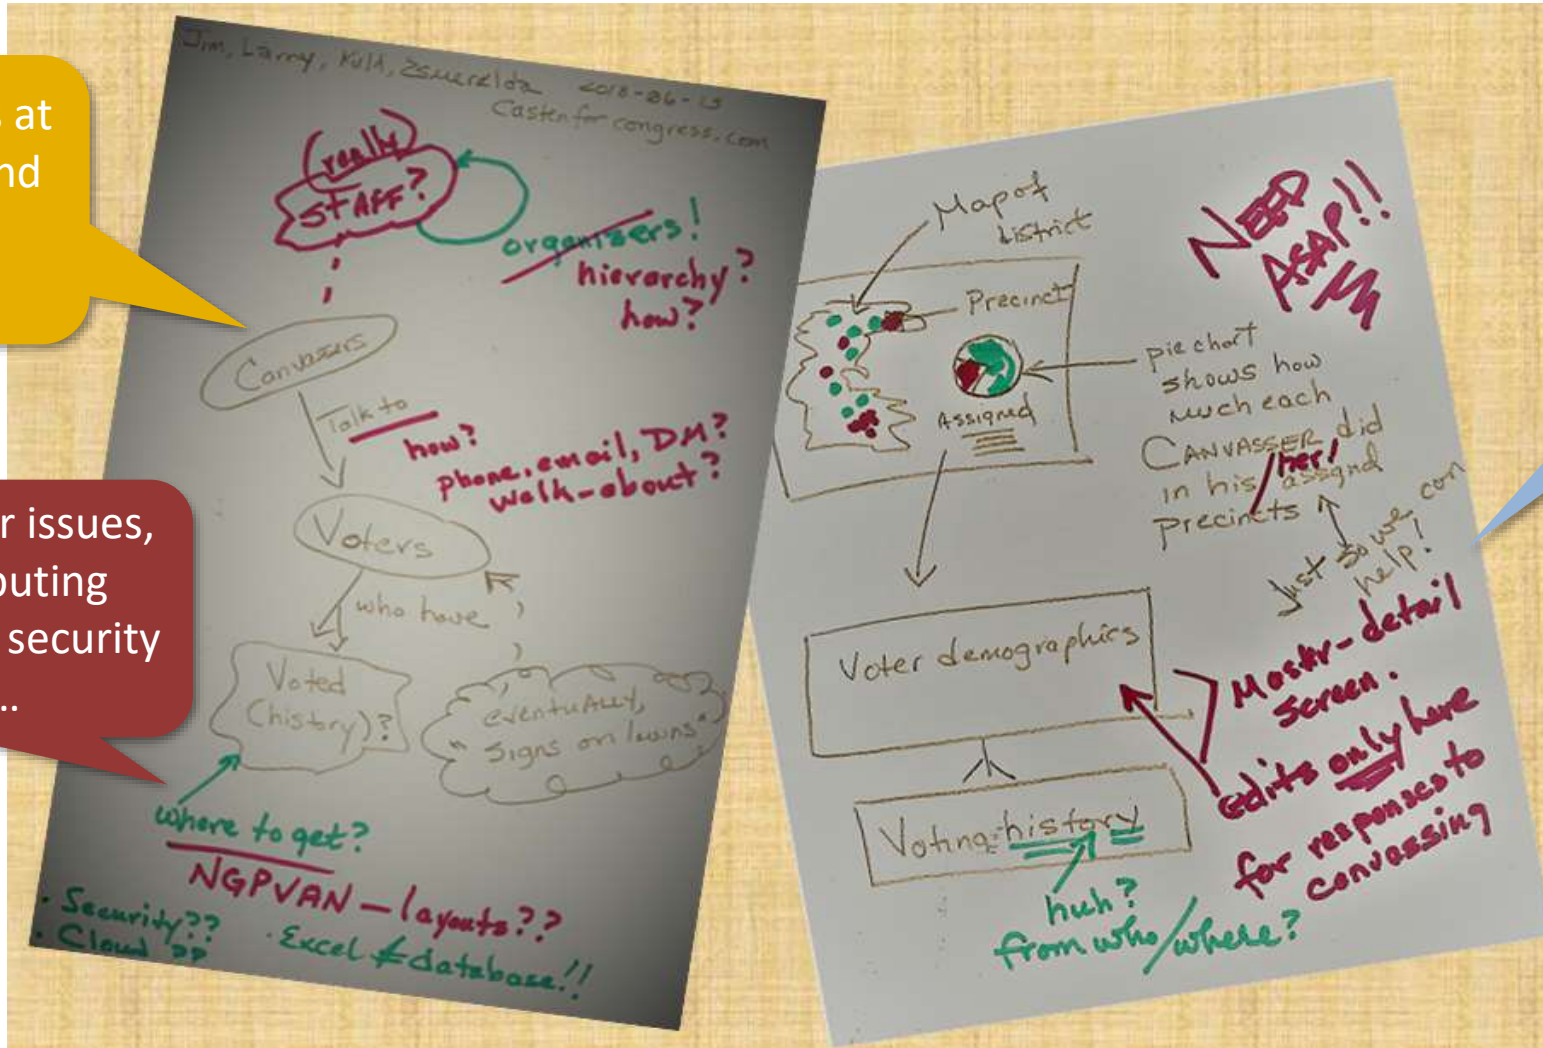 s at
nd
r issues,
outing
security
...
Jim, Larry, Kula, Esmerelda 2018-06-15
Casten for congress.com
(really)
STAFF?
organizers!
hierarchy?
how?
Canvassers
Talk to
how?
phone, email, DM?
walk-about?
Voters
who have
Voted
(history)?
eventually,
"signs on lawns"
where to get?
NGPVAN - layouts??
• Security??
• Cloud ??
• Excel ≠ database!!
Map of
district
NEED
ASAP!!
Precinct
Assigned
pie chart
shows how
much each
CANVASSER did
in his/her! assignd
precincts
Just so we can
help!
Voter demographics
Master-detail
screen.
Edits only here
for responses to
canvassing
Voting history
huh?
from who/where?